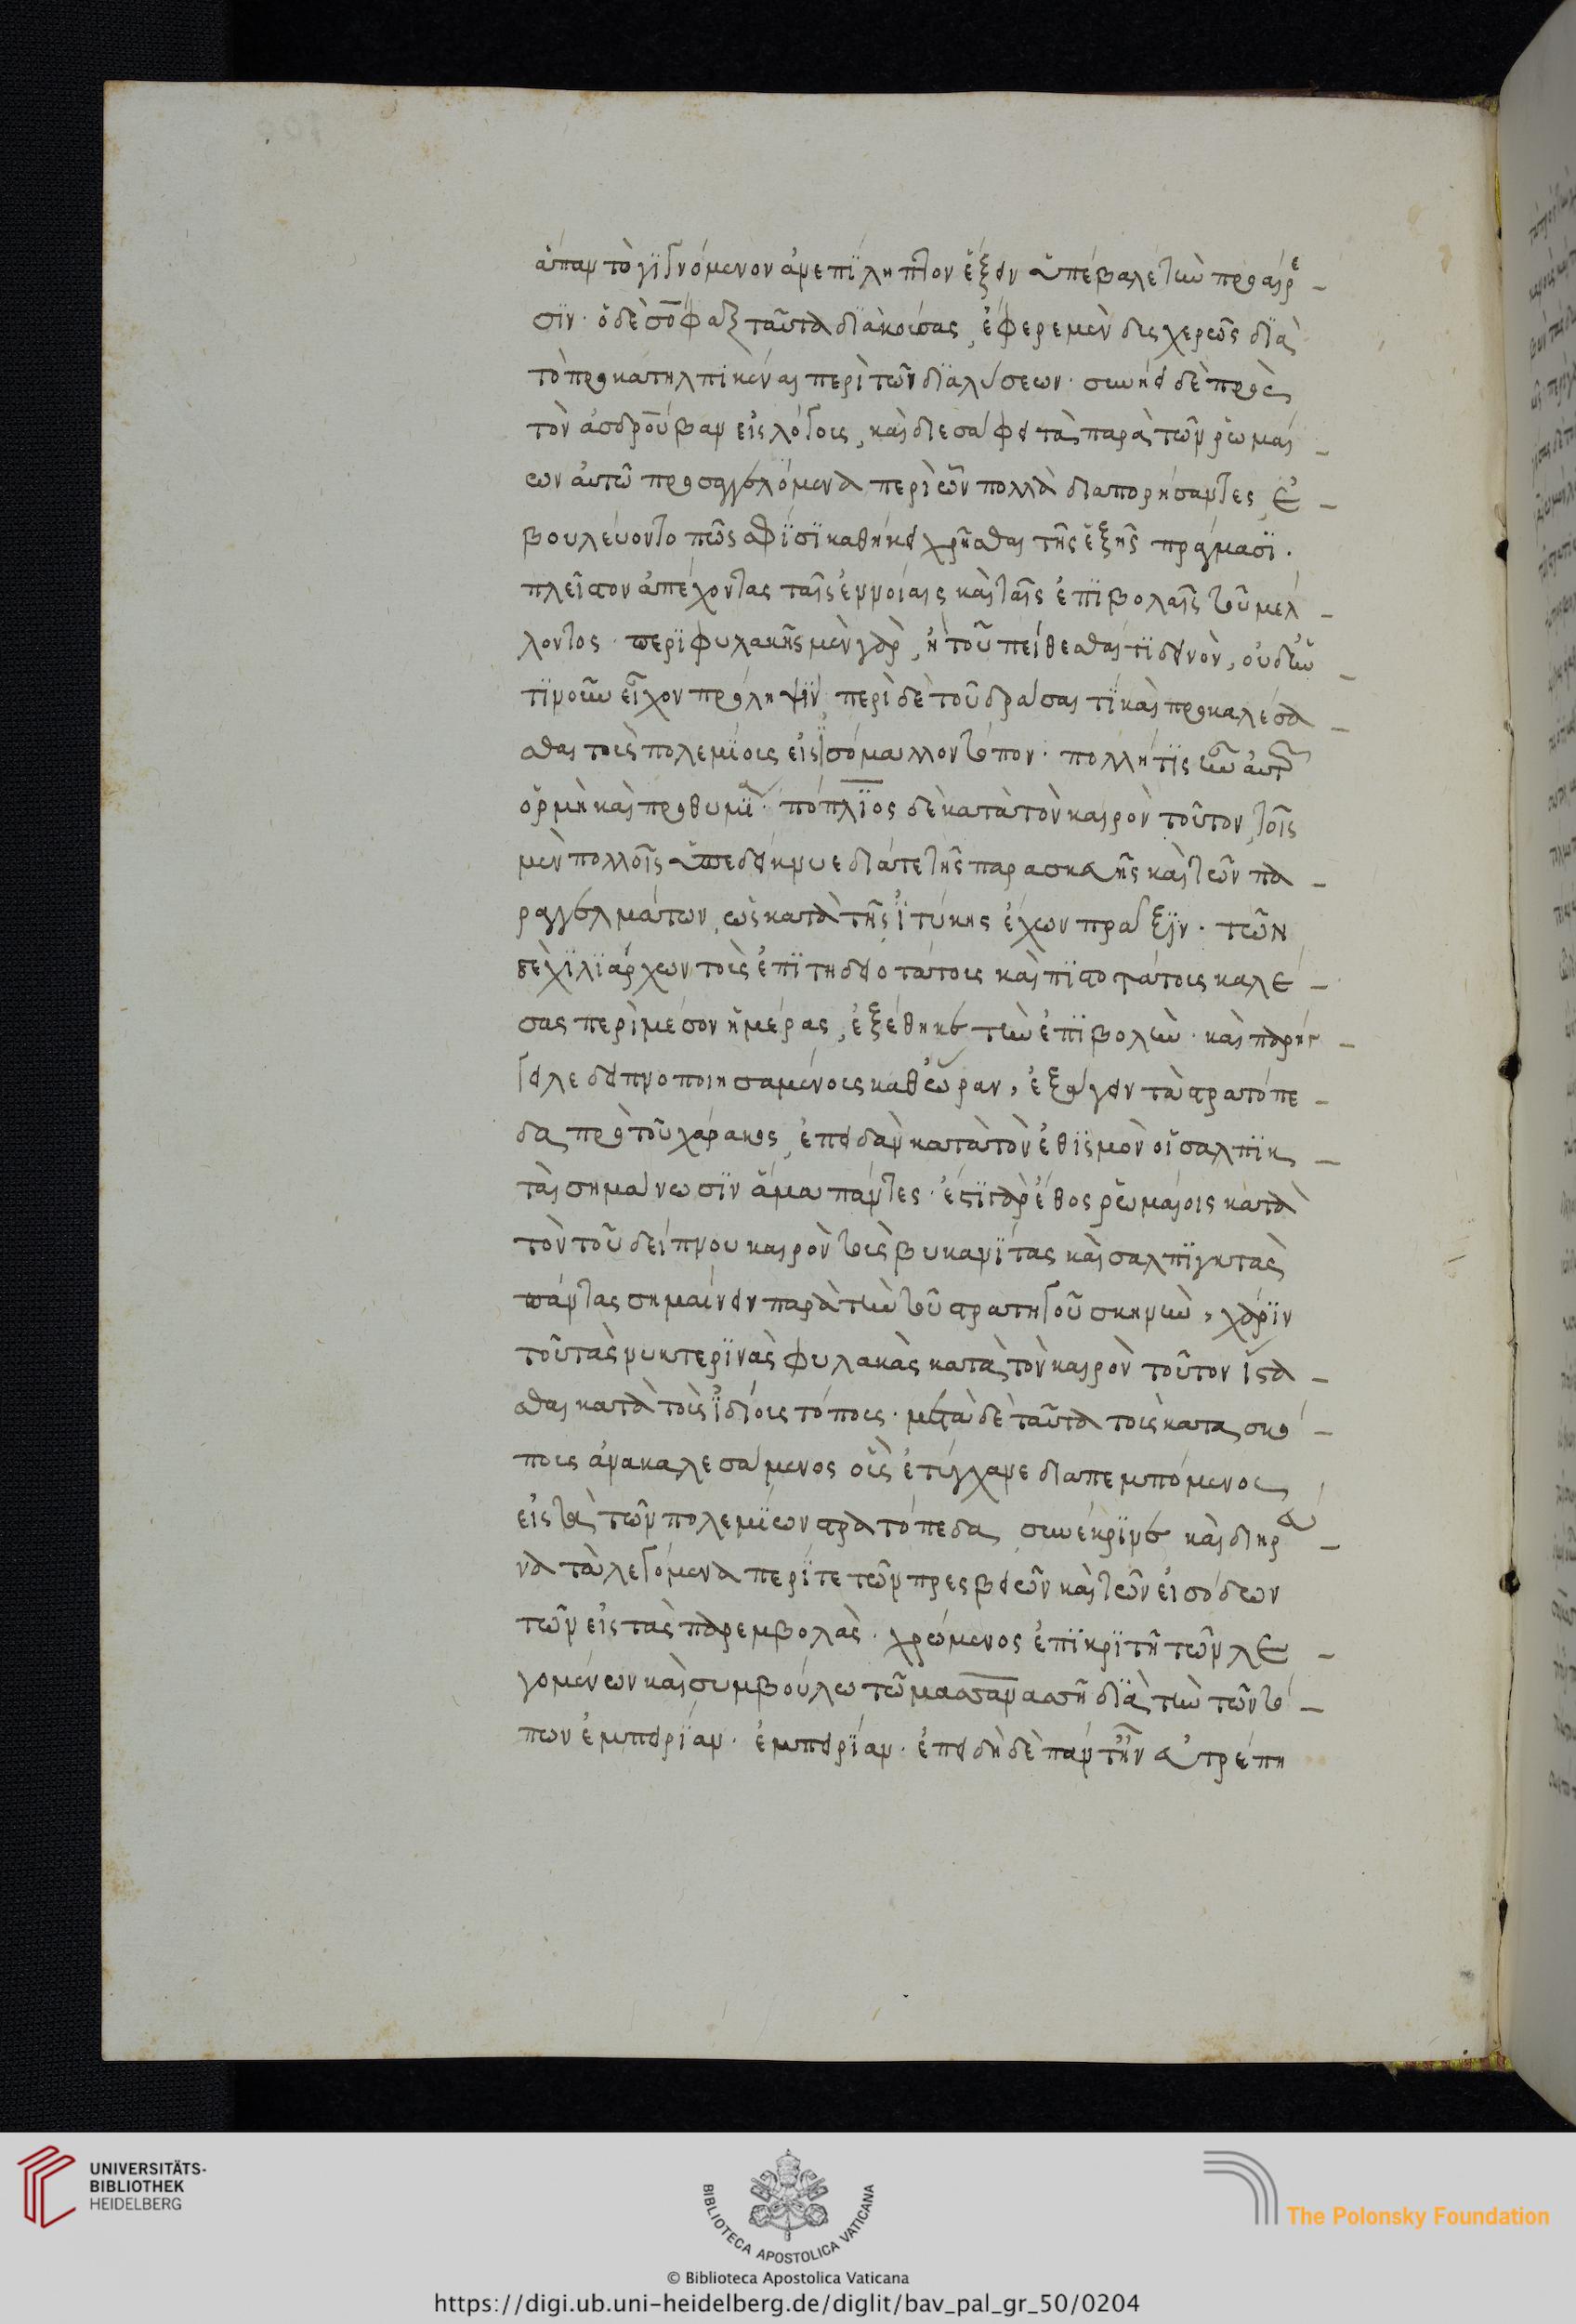 ἅπαν τὸ γιγνόμενον ἀνεπίληπτον ἕξειν ὑπέβαλε τὴν προαίρε-
σιν· ὁ δὲ σόφαξ ταῦτα διακούσας, ἔφερε μὲν δυσχερῶς διὰ
τὸ προκατηλπικέναι περὶ τῶν διαλύσεων· συνήει δὲ πρὸς
τὸν ἀσδρούβαν εἰς λόγους, καὶ διεσάφει τὰ παρὰ τῶν ῥωμαί-
ων αὐτῶ προσαγγελλόμενα περὶ ὧν πολλὰ διαπορήσαντες ἐ-
βουλεύοντο πῶς σφίσι καθήκει χρῆσθαι τῆς ἑξῆς πράγμασι.
πλεῖστον ἀπέχοντας ταῖς ἐννοίαις καὶ ταῖς ἐπιβολαῖς τοῦ μέλ-
λοντος· περὶ φυλακῆς μὲν γὰρ, ἢ τοῦ πείθεσθαί τι δεινὸν, οὐδ' ἣν
τινοῦν εἶχον πρόληψιν, περὶ δὲ τοῦ δρᾶσαί τι καὶ προκαλέσα-
σθαι τοὺς πολεμίους εἰς ἰσόμαλλον τόπον· πολλή τις ἦν αὐτῶν
ὁρμὴ καὶ προθυμία· πόπλιος δὲ κατὰ τὸν καιρὸν τοῦτον, τοῖς
μὲν πολλοῖς ὑπεδείκνυε διά τε τῆς παρασκευῆς καὶ τῶν πα-
ραγγελμάτων, ὡς κατὰ τῆς ἰτύκης ἔχων πρᾶξιν· τῶν
δὲ χιλιάρχων τοὺς ἐπιτηδειοτάτους καὶ πιστοτάτους καλέ-
σας περὶ μέσον ἡμέρας, ἐξέθηκε τὴν ἐπιβολὴν· καὶ παρήγ-
γειλε δειπνοποιησαμένους καθ' ὥραν, ἐξάγειν τὰ στρατόπε-
δα πρὸ τοῦ χάρακος, ἐπειδὰν κατὰ τὸν ἐθισμὸν οἱ σαλπικ-
ταὶ σημαίνωσιν ἅμα πάντες· ἔστι γὰρ ἔθος ῥωμαίοις κατὰ
τὸν τοῦ δείπνου καιρὸν τοὺς βυκανίτας καὶ σαλπιγκτὰς
πάντας σημαίνειν παρὰ τὴν τοῦ στρατηγοῦ σκηνὴν, χάριν
τοῦ τὰς νυκτερινὰς φυλακὰς κατὰ τὸν καιρὸν τοῦτον ἵστα-
σθαι κατὰ τοὺς ἰδίους τόπους· μετὰ δὲ ταῦτα τοὺς κατασκό-
πους ἀνακαλεσάμενος οὓς ἐτύγχανε διαπεμπόμενος
εἰς τὰ τῶν πολεμίων στρατόπεδα, συνέκρινε καὶ διηρεύ-
να τὰ λεγόμενα περί τε τῶν πρεσβειῶν καὶ τῶν εἰσόδων
τῶν εἰς τὰς παρεμβολὰς· χρώμενος ἐπικριτῆ τῶν λε-
γομένων καὶ συμβούλω τῶ μασσανασση διὰ τὴν τῶν τό-
πων ἐμπειρίαν· ἐμπειρίαν· ἐπειδὴ δὲ πάντ' ἦν εὐτρεπῆ
UNIVERSITÄTS-
BIBLIOTHEK
HEIDELBERG
BIBLIOTECA APOSTOLICA VATICANA
© Biblioteca Apostolica Vaticana
The Polonsky Foundation
https://digi.ub.uni-heidelberg.de/diglit/bav_pal_gr_50/0204